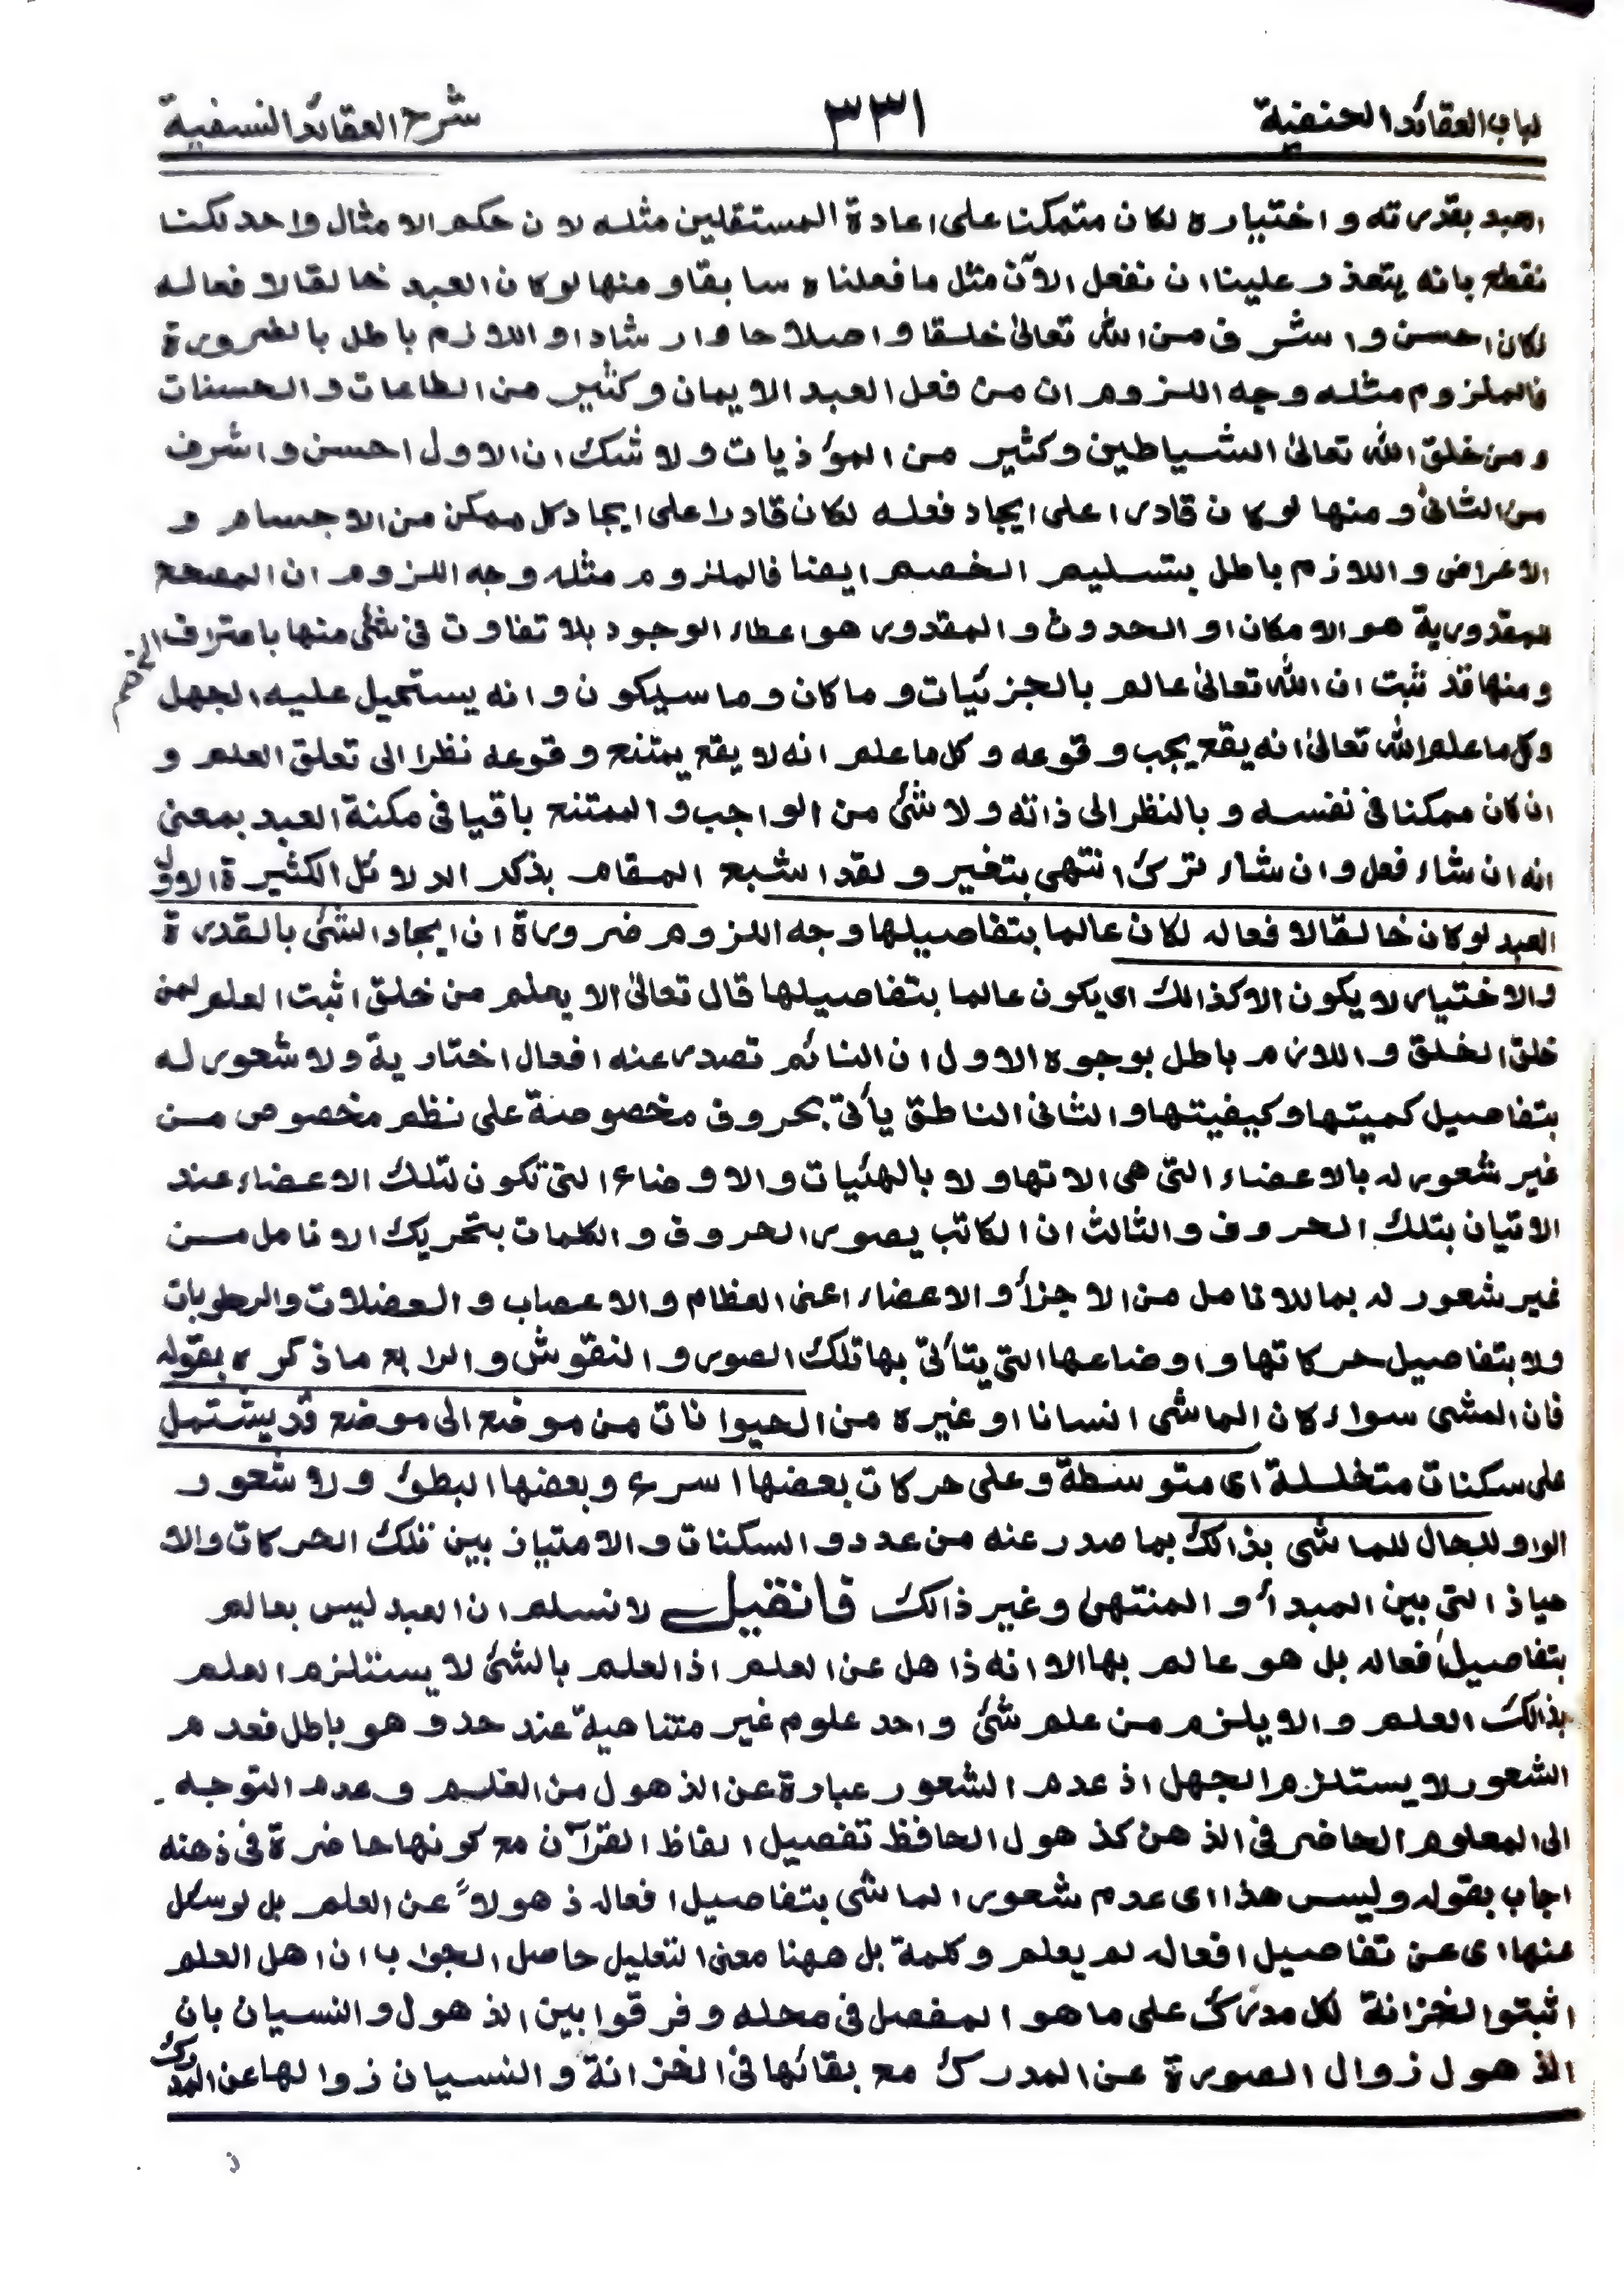 لباب العقائد الحنفية ٣٣١ شرح العقائد النسفية
العبد بقدرته و اختياره لكان متمكنا على اعادة المستقلين مثله لان حكم الامثال واحد لكنا
نقطع بانه يتعذر علينا ان نفعل الآن مثل ما فعلناه سابقا و منها لو كان العبد خالقا لافعاله
لكان احسن و اشرف من الله تعالىٰ خلقا و اصلاحا و ارشادا و اللازم باطل بالضرورة
فالملزوم مثله وجه اللزوم ان من فعل العبد الايمان و كثير من الطاعات و الحسنات
و من خلق الله تعالىٰ الشياطين و كثير من المؤذيات و لا شك ان الاول احسن و اشرف
من الثانى و منها لو كان قادرا على ايجاد فعله لكان قادرا على ايجاد كل ممكن من الاجسام و
الاعراض و اللازم باطل بتسليم الخصم ايضا فالملزوم مثله وجه اللزوم ان المصحح
للمقدورية هو الامكان او الحدوث و المقدور هو اعطاء الوجود بلا تفاوت فى شئ منها باعتراف الخصم
و منها قد ثبت ان الله تعالىٰ عالم بالجزئيات و ما كان و ما سيكون و انه يستحيل عليه الجهل
و كل ما علم الله تعالىٰ انه يقع يجب وقوعه و كل ما علم انه لا يقع يمتنع وقوعه نظرا الى تعلق العلم و
ان كان ممكنا فى نفسه و بالنظر الى ذاته و لا شئ من الواجب و الممتنع باقيا فى مكنة العبد بمعنى
انه ان شاء فعل و ان شاء ترك انتهى بتغير و لقد اشبع المقام بذكر الدلائل الكثيرة الاول
العبد لو كان خالقا لافعاله لكان عالما بتفاصيلها وجه اللزوم ضرورة ان ايجاد الشئ بالقدرة
و الاختيار لا يكون الا كذالك اى يكون عالما بتفاصيلها قال تعالىٰ الا يعلم من خلق اثبت العلم لمن
خلق الخلق و اللازم باطل بوجوه الاول ان النائم تصدر عنه افعال اختارية و لا شعور له
بتفاصيل كميتها و كيفيتها و الثانى الناطق يأتى بحروف مخصوصة على نظم مخصوص من
غير شعور له بالاعضاء التى هى الاتها و لا بالهئيات و الاوضاع التى تكون لتلك الاعضاء عند
الاتيان بتلك الحروف و الثالث ان الكاتب يصور الحروف و الكلمات بتحريك الانامل من
غير شعور له بما للانامل من الاجزأ و الاعضاء اعنى العظام و الاعصاب و العضلات و الرطوبات
و لا بتفاصيل حركاتها و اوضاعها التى يتأتى بها تلك الصور و النقوش و الرابع ما ذكره بقوله
فان المشى سواء كان الماشى انسانا او غيره من الحيوانات من موضع الى موضع قد يشتمل
على سكنات متخللة اى متوسطة و على حركات بعضها اسرع و بعضها ابطئ و لا شعور
الواو للحال للماشى بذالك بما صدر عنه من عدد و السكنات و الامتياز بين تلك الحركات و الا
حياز التى بين المبدأ و المنتهى و غير ذالك فانقيل لا نسلم ان العبد ليس بعالم
بتفاصيل افعاله بل هو عالم بها الا انه ذاهل عن العلم اذ العلم بالشئ لا يستلزم العلم
بذالك العلم و الا يلزم من علم شئ واحد علوم غير متناهية عند حد و هو باطل فعدم
الشعور لا يستلزم الجهل اذ عدم الشعور عبارة عن الذهول من العلم و عدم التوجه
الى المعلوم الحاضر فى الذهن كذهول الحافظ تفصيل الفاظ القرآن مع كونها حاضرة فى ذهنه
اجاب بقوله و ليس هذا اى عدم شعور الماشى بتفاصيل افعاله ذهولاً عن العلم بل لو سئل
عنها اى عن تفاصيل افعاله لم يعلم و كلمة بل ههنا معنى التعليل حاصل الجواب ان اهل العلم
اثبتوا الخزانة لكل مدرك على ما هو المفصل فى محله و فرقوا بين الذهول و النسيان بان
الذهول زوال الصورة عن المدرك مع بقائها فى الخزانة و النسيان زوالها عن المدرك